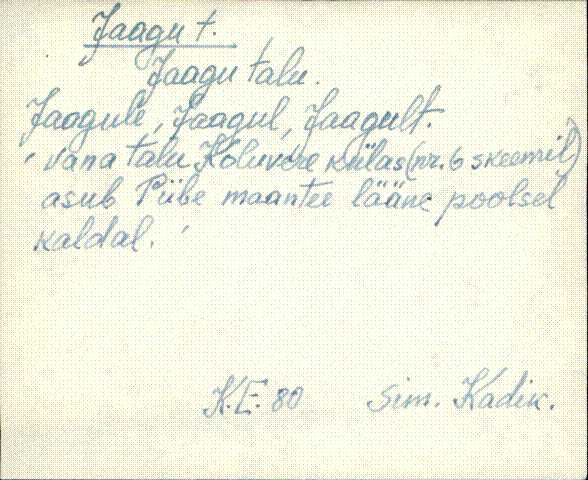 Jaagu t.
Jaagu talu.
Jaagule, Jaagul, Jaagult.
' vana talu Koluvere külas (nr. 6 skeemil)
asub Piibe maantee lääne poolsel
kaldal. '
K.E. 80 Sim. Kadik.